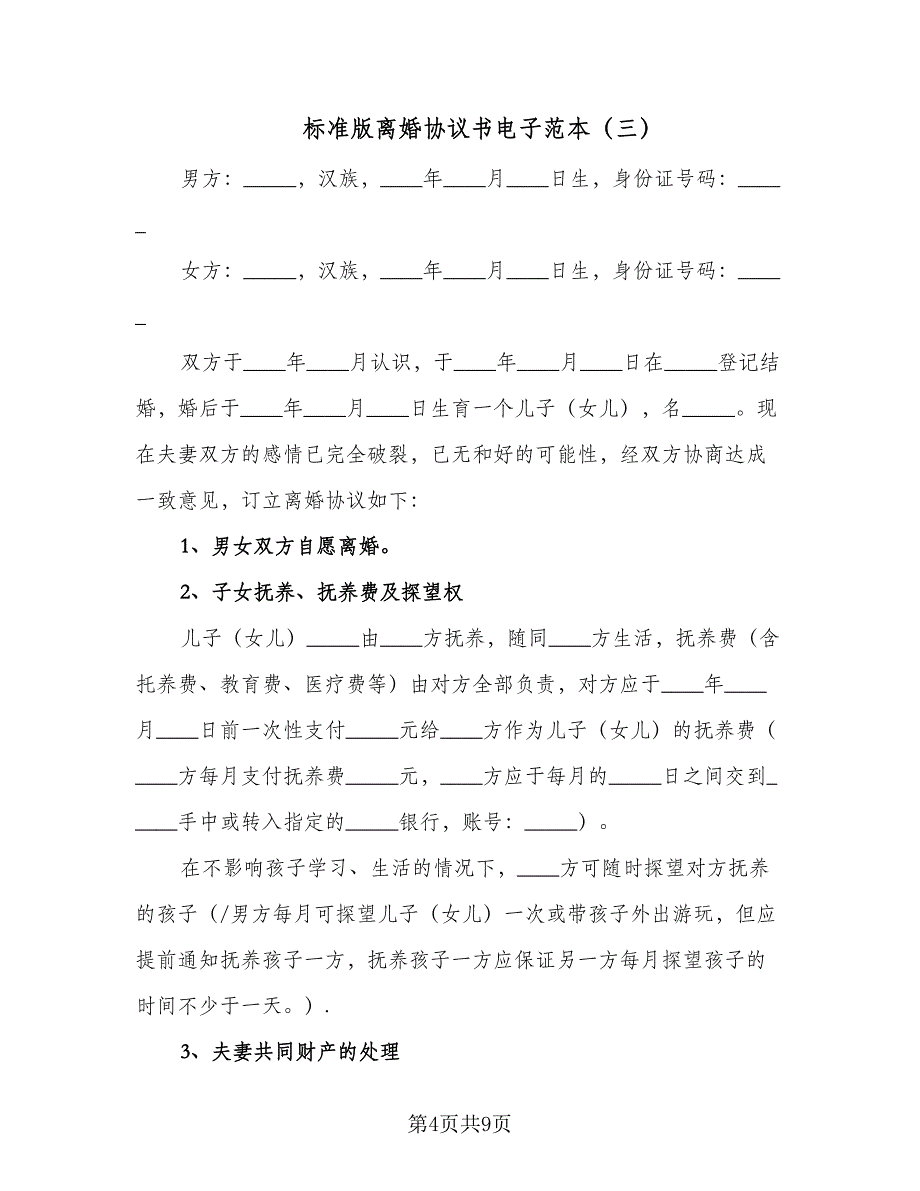 标准版离婚协议书电子范本（三）
男方：_____，汉族，____年____月____日生，身份证号码：____
_
女方：_____，汉族，____年____月____日生，身份证号码：____
_
双方于____年____月认识，于____年____月____日在_____登记结
婚，婚后于____年____月____日生育一个儿子（女儿），名_____。现
在夫妻双方的感情已完全破裂，已无和好的可能性，经双方协商达成
一致意见，订立离婚协议如下：
1、男女双方自愿离婚。
2、子女抚养、抚养费及探望权
儿子（女儿）_____由____方抚养，随同____方生活，抚养费（含
托养费、教育费、医疗费等）由对方全部负责，对方应于____年____
月____日前一次性支付_____元给____方作为儿子（女儿）的抚养费（
____方每月支付抚养费_____元，____方应于每月的_____日之间交到_
____手中或转入指定的_____银行，账号：_____）。
在不影响孩子学习、生活的情况下，____方可随时探望对方抚养
的孩子（/男方每月可探望儿子（女儿）一次或带孩子外出游玩，但应
提前通知抚养孩子一方，抚养孩子一方应保证另一方每月探望孩子的
时间不少于一天。）.
3、夫妻共同财产的处理
第4页共9页